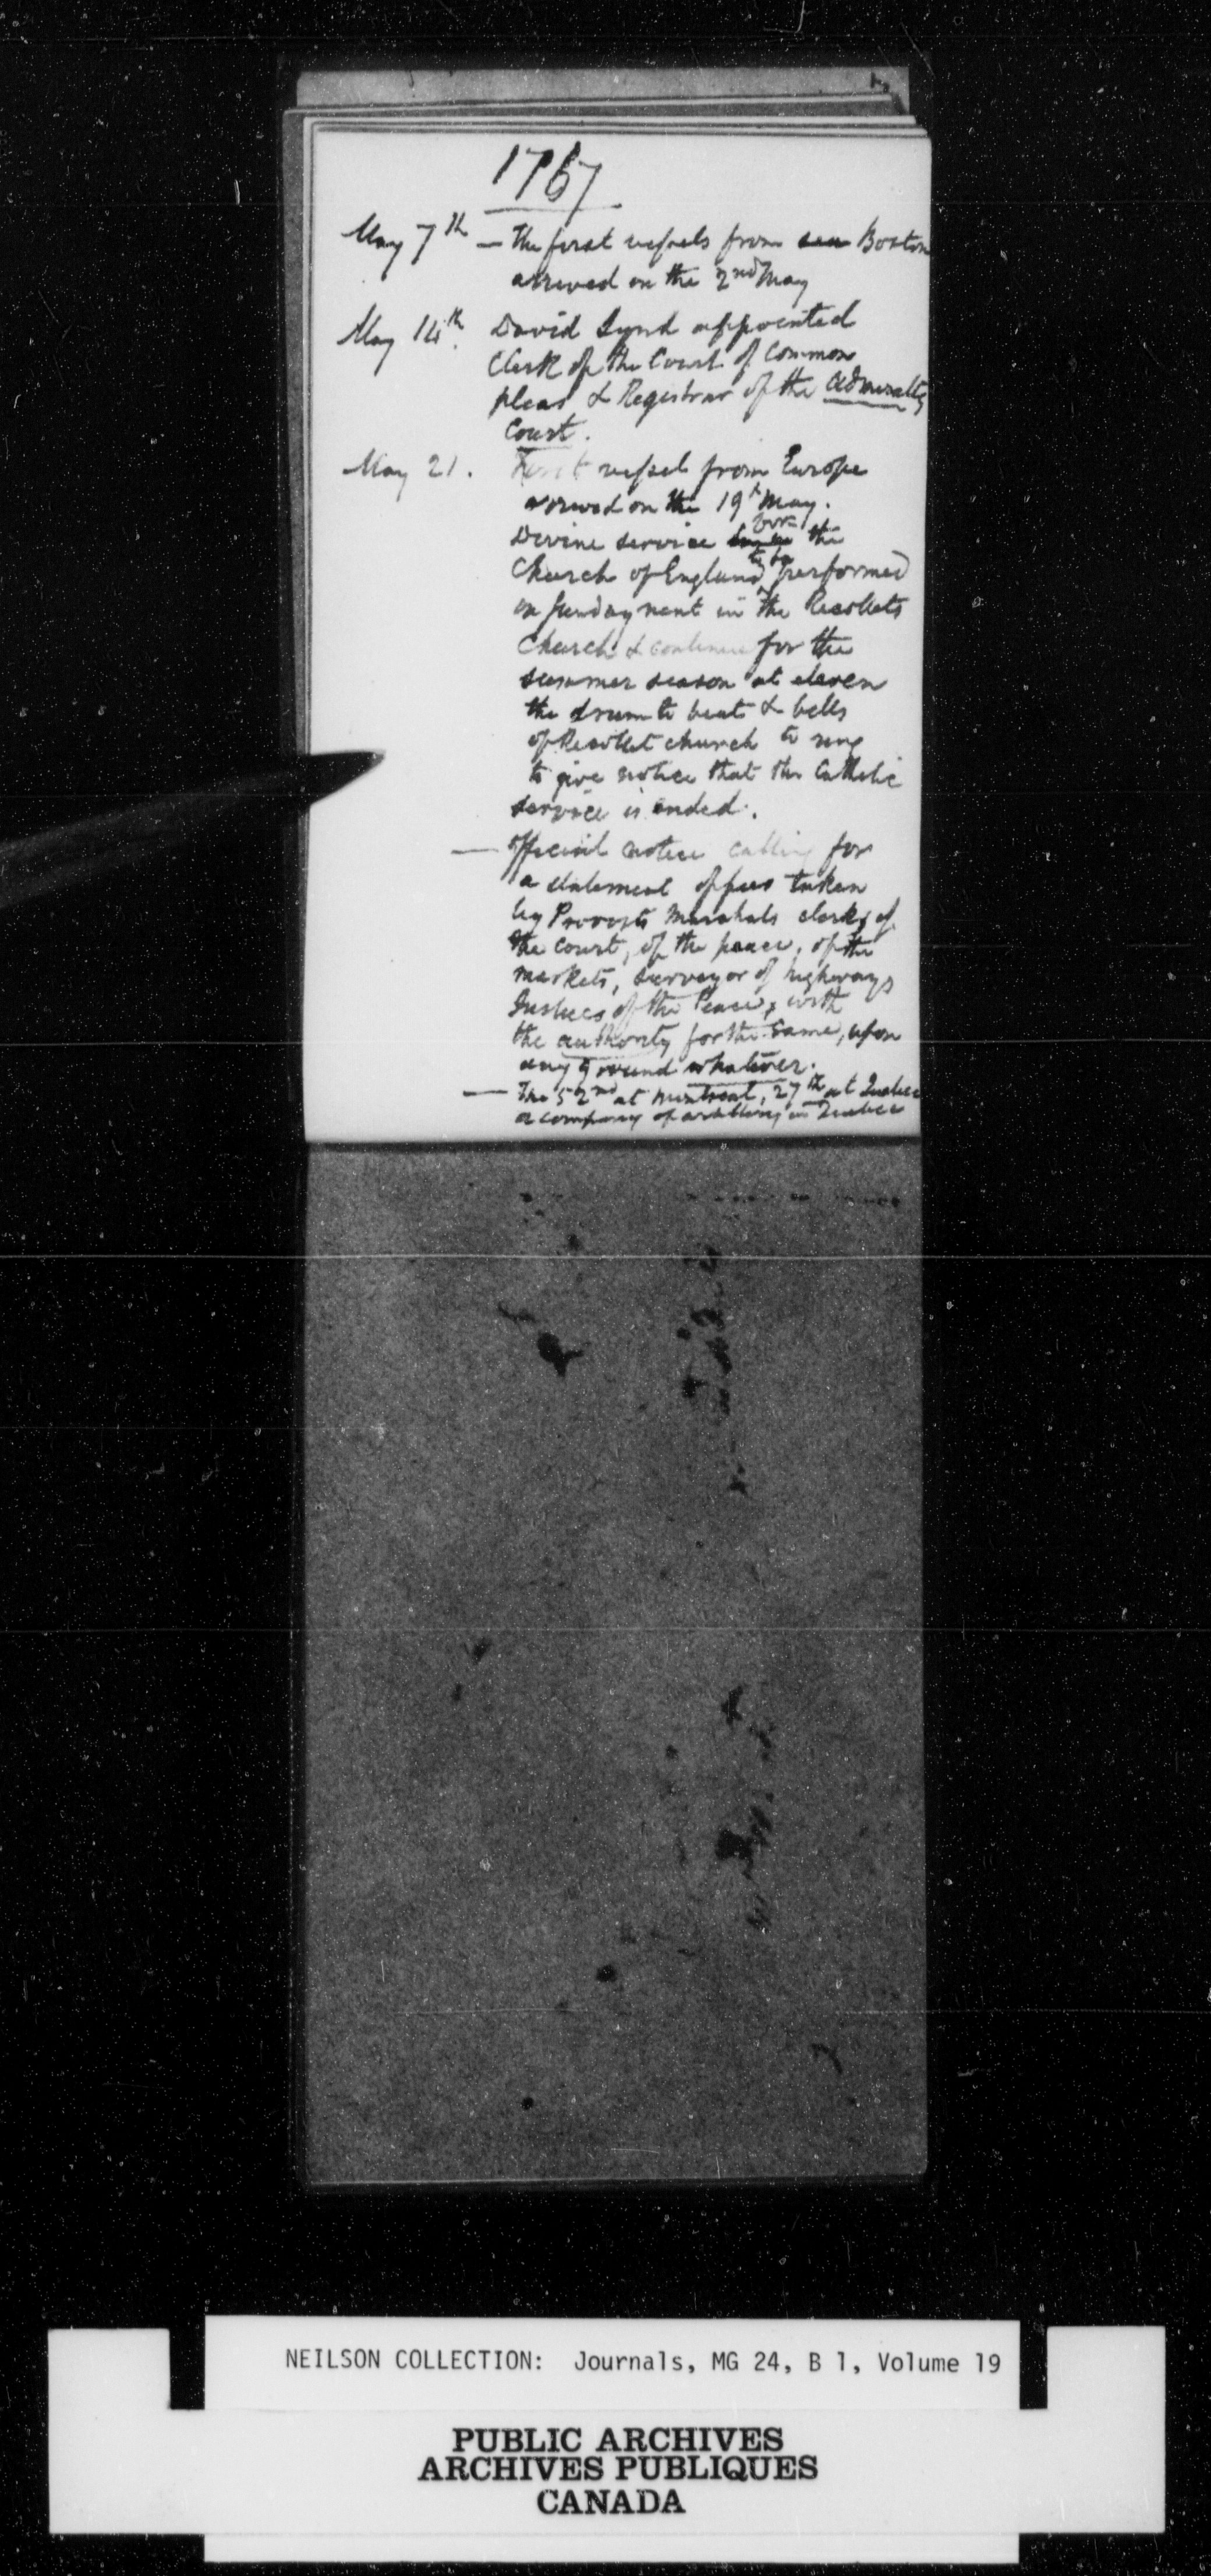 1767
May 7th — The first vessels from Boston
arrived on the 2nd May
May 14th. David Lynd appointed
Clerk of the Court of Common
pleas & Registrar of the Admiralty
Court.
May 21. First vessel from Europe
arrived on the 19th May.
Divine service the
Church of England to be performed
on Sunday next in the Recollets
Church & continue for the
summer season at eleven
the drum to beat & bells
of Recollet church to ring
to give notice that the Catholic
service is ended.
— Official notice calling for
a statement of fees taken
by Provosts Marshals clerks of
the court, of the peace, of the
markets, surveyor of highways
Justices of the Peace, with
the authority for the same, upon
any ground whatever.
— The 52nd at Montreal, 27th at Quebec
a company of artillery in Quebec
NEILSON COLLECTION: Journals, MG 24, B 1, Volume 19
PUBLIC ARCHIVES
ARCHIVES PUBLIQUES
CANADA